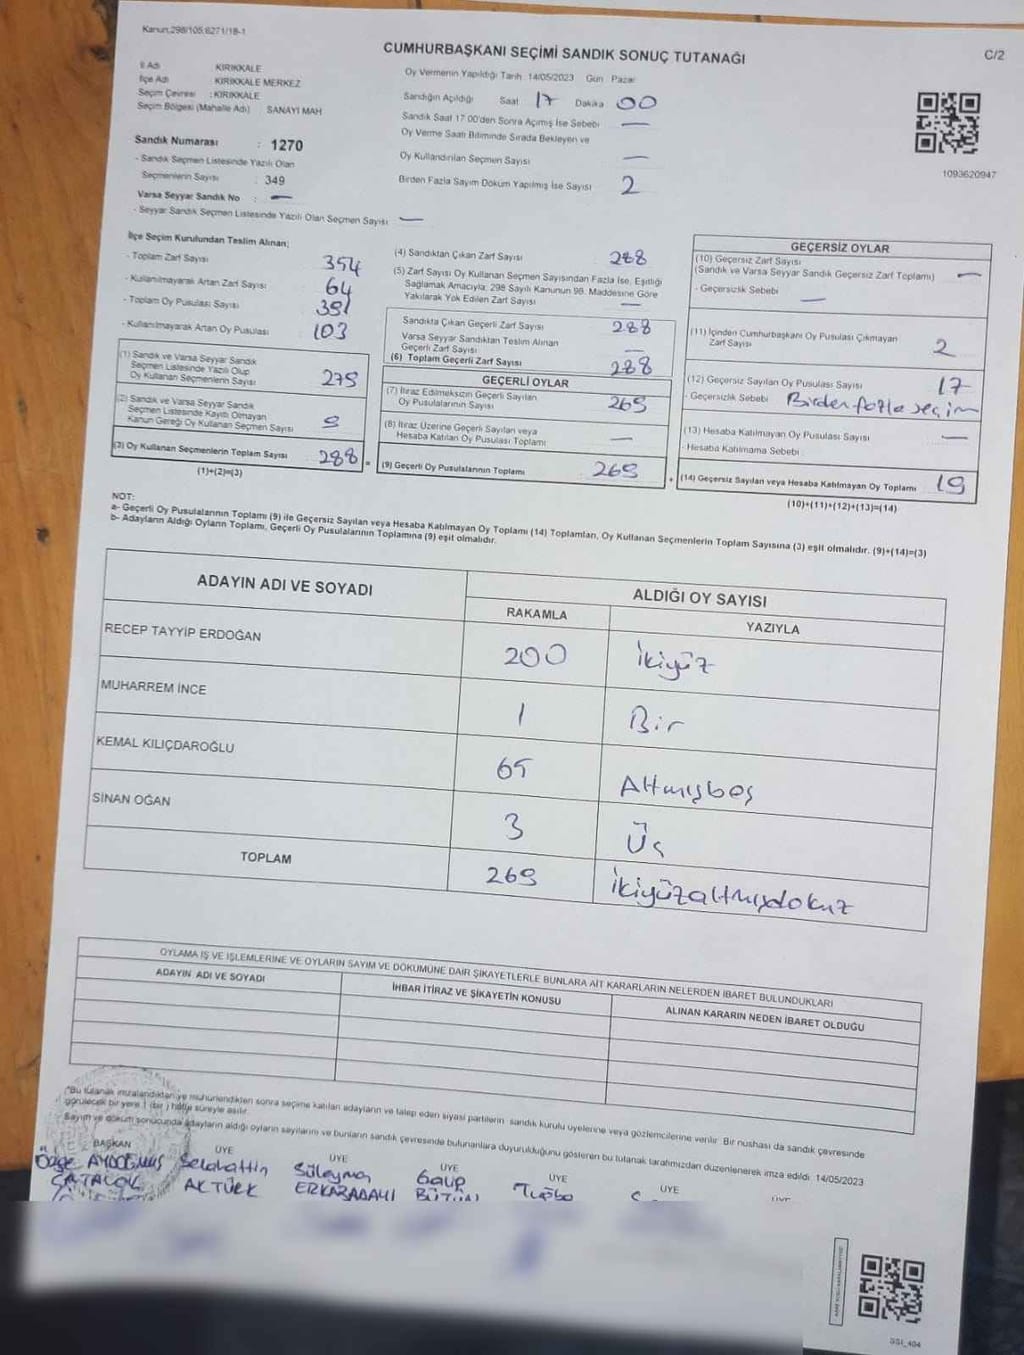 Kanun;298/105;6271/18-1
CUMHURBAŞKANI SEÇİMİ SANDIK SONUÇ TUTANAĞI
C/2
İl Adı KIRIKKALE
İlçe Adı KIRIKKALE MERKEZ
Seçim Çevresi : KIRIKKALE
Seçim Bölgesi (Mahalle Adı) SANAYİ MAH
Sandık Numarası : 1270
- Sandık Seçmen Listesinde Yazılı Olan
Seçmenlerin Sayısı : 349
Varsa Seyyar Sandık No : —
- Seyyar Sandık Seçmen Listesinde Yazılı Olan Seçmen Sayısı —
Oy Vermenin Yapıldığı Tarih 14/05/2023 Gün Pazar
Sandığın Açıldığı Saat 17 Dakika 00
Sandık Saat 17.00'den Sonra Açımış İse Sebebi —
Oy Verme Saati Bitiminde Sırada Bekleyen ve
Oy Kullandırılan Seçmen Sayısı —
Birden Fazla Sayım Döküm Yapılmış İse Sayısı 2
1093620947
İlçe Seçim Kurulundan Teslim Alınan;
- Toplam Zarf Sayısı 354
- Kullanılmayarak Artan Zarf Sayısı 64
- Toplam Oy Pusulası Sayısı
- Kullanılmayarak Artan Oy Pusulası 103
(1) Sandık ve Varsa Seyyar Sandık
Seçmen Listesinde Yazılı Olup
Oy Kullanan Seçmenlerin Sayısı 279
(2) Sandık ve Varsa Seyyar Sandık
Seçmen Listesinde Kayıtlı Olmayan
Kanun Gereği Oy Kullanan Seçmen Sayısı 9
(3) Oy Kullanan Seçmenlerin Toplam Sayısı 288
(1)+(2)=(3)
(4) Sandıktan Çıkan Zarf Sayısı 288
(5) Zarf Sayısı Oy Kullanan Seçmen Sayısından Fazla İse, Eşitliği
Sağlamak Amacıyla; 298 Sayılı Kanunun 98. Maddesine Göre
Yakılarak Yok Edilen Zarf Sayısı —
Sandıkta Çıkan Geçerli Zarf Sayısı 288
Varsa Seyyar Sandıktan Teslim Alınan
Geçerli Zarf Sayısı —
(6) Toplam Geçerli Zarf Sayısı 288
GEÇERLİ OYLAR
(7) İtiraz Edilmeksizin Geçerli Sayılan
Oy Pusulalarının Sayısı 269
(8) İtiraz Üzerine Geçerli Sayılan veya
Hesaba Katılan Oy Pusulası Toplamı —
(9) Geçerli Oy Pusulalarının Toplamı 269
GEÇERSİZ OYLAR
(10) Geçersiz Zarf Sayısı
(Sandık ve Varsa Seyyar Sandık Geçersiz Zarf Toplamı) —
- Geçersizlik Sebebi —
(11) İçinden Cumhurbaşkanı Oy Pusulası Çıkmayan
Zarf Sayısı 2
(12) Geçersiz Sayılan Oy Pusulası Sayısı 17
- Geçersizlik Sebebi Birden fazla seçim
(13) Hesaba Katılmayan Oy Pusulası Sayısı —
- Hesaba Katılmama Sebebi
(14) Geçersiz Sayılan veya Hesaba Katılmayan Oy Toplamı 19
(10)+(11)+(12)+(13)=(14)
NOT:
a- Geçerli Oy Pusulalarının Toplamı (9) ile Geçersiz Sayılan veya Hesaba Katılmayan Oy Toplamı (14) Toplamları, Oy Kullanan Seçmenlerin Toplam Sayısına (3) eşit olmalıdır. (9)+(14)=(3)
b- Adayların Aldığı Oyların Toplamı, Geçerli Oy Pusulalarının Toplamına (9) eşit olmalıdır.
ADAYIN ADI VE SOYADI
ALDIĞI OY SAYISI
RAKAMLA YAZIYLA
RECEP TAYYİP ERDOĞAN 200 İkiyüz
MUHARREM İNCE 1 Bir
KEMAL KILIÇDAROĞLU 65 Altmışbeş
SİNAN OĞAN 3 Üç
TOPLAM 269 İkiyüzaltmışdokuz
OYLAMA İŞ VE İŞLEMLERİNE VE OYLARIN SAYIM VE DÖKÜMÜNE DAİR ŞİKAYETLERLE BUNLARA AİT KARARLARIN NELERDEN İBARET BULUNDUKLARI
ADAYIN ADI VE SOYADI
İHBAR İTİRAZ VE ŞİKAYETİN KONUSU
ALINAN KARARIN NEDEN İBARET OLDUĞU
"Bu tutanak imzalandıktan ve mühürlendikten sonra seçime katılan adayların ve talep eden siyasi partilerin sandık kurulu üyelerine veya gözlemcilerine verilir. Bir nushası da sandık çevresinde
görülecek bir yere 1 (bir) hafta süreyle asılır.
Sayım ve döküm sonucunda adayların aldığı oyların sayılarını ve bunların sandık çevresinde bulunanlara duyurulduğunu gösteren bu tutanak tarafımızdan düzenlenerek imza edildi. 14/05/2023
BAŞKAN ÜYE ÜYE ÜYE ÜYE ÜYE
Özge AYDOĞMUŞ Selahattin Süleyman Galip Tuğba
ÇATALOL AKTÜRK BÜTÜN